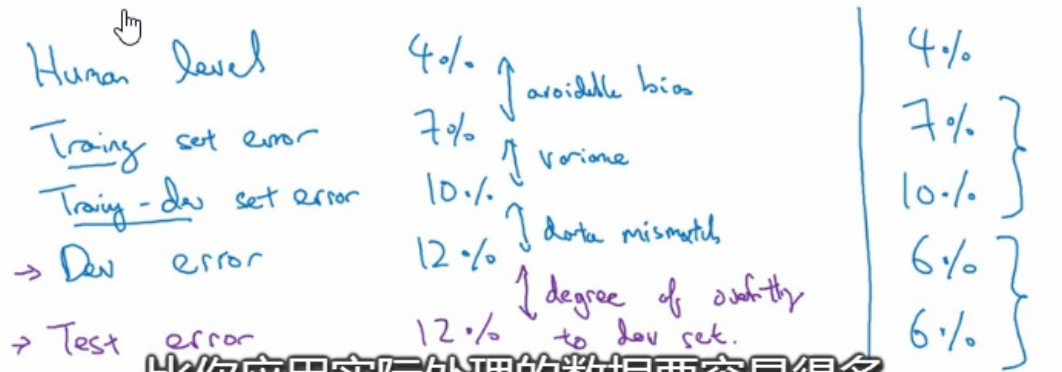 Human level 4% 4%
avoidable bias
Training set error 7% 7%
variance
Training-dev set error 10% 10%
data mismatch
→ Dev error 12% 6%
degree of overfitting
→ Test error 12% to dev set. 6%
比你应用实际处理的数据要容易得多